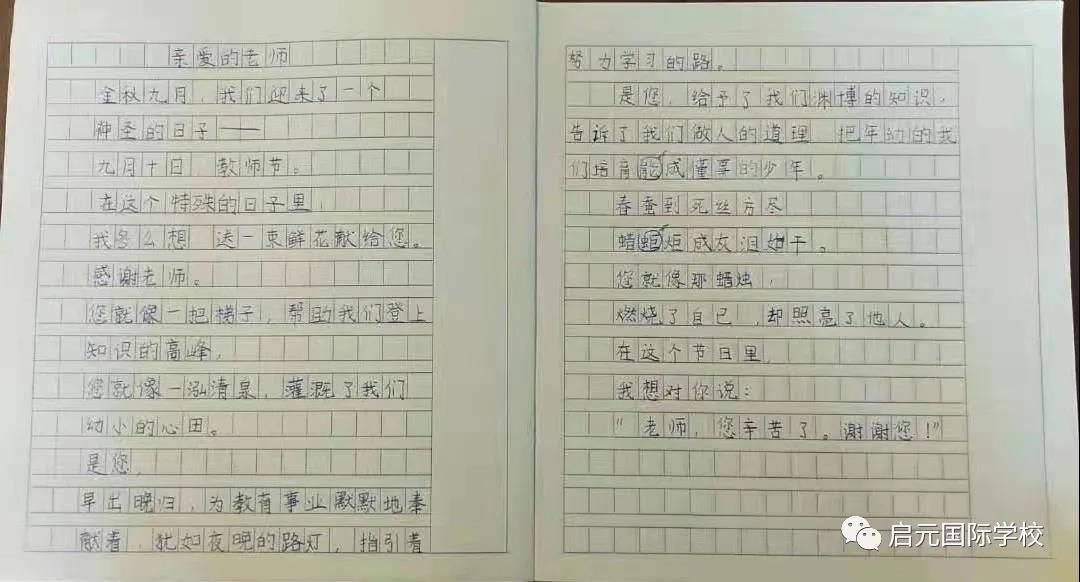 亲爱的老师
金秋九月，我们迎来了一个
神圣的日子——
九月十日 教师节。
在这个特殊的日子里，
我多么想 送一束鲜花献给您。
感谢老师。
您就像一把梯子，帮助我们登上
知识的高峰，
您就像一泓清泉，灌溉了我们
幼小的心田。
是您，
早出晚归，为教育事业默默地奉
献着，犹如夜晚的路灯，指引着
努力学习的路。
是您，给予了我们渊博的知识，
告诉了我们做人的道理 把年幼的我
们培育成懂事的少年。
春蚕到死丝方尽
蜡炬成灰泪始干。
您就像那蜡烛，
燃烧了自己，却照亮了他人。
在这个节日里，
我想对你说：
“老师，您辛苦了。谢谢您！”
启元国际学校